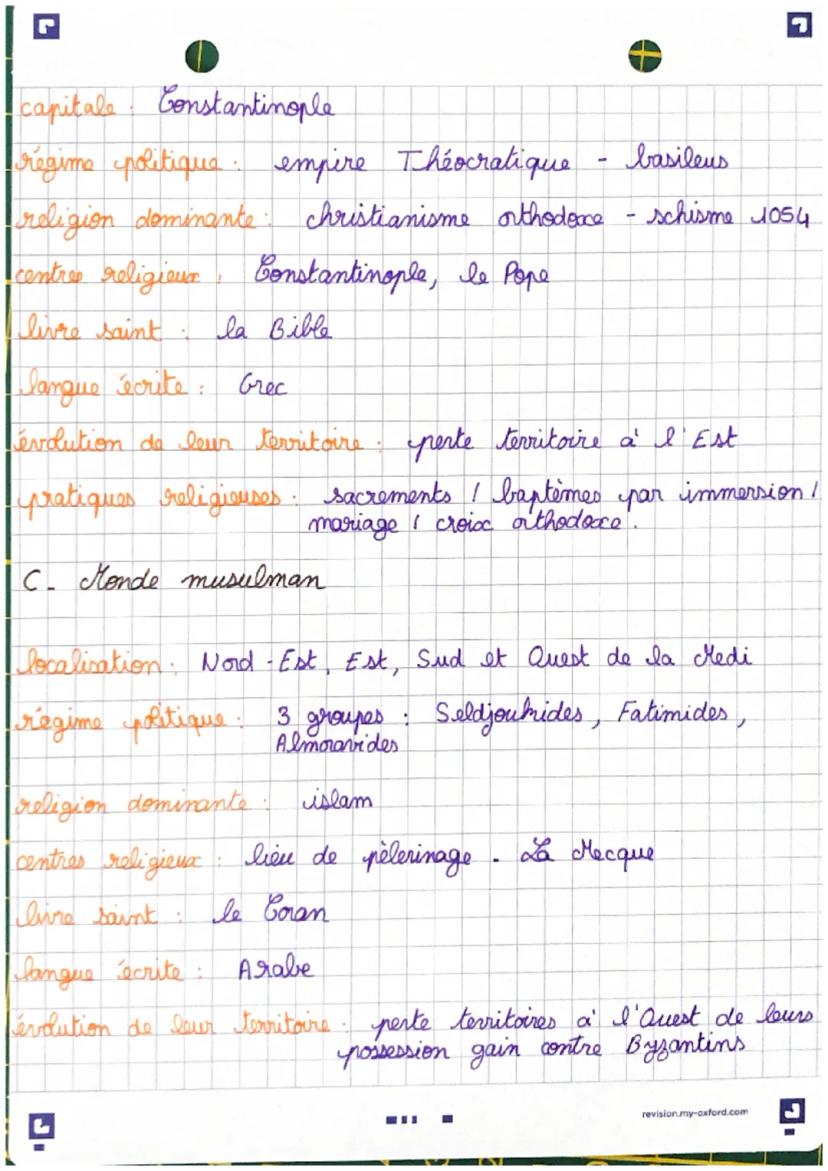 capitale : Constantinople
régime politique : empire Théocratique - basileus
religion dominante : christianisme orthodoxe - schisme 1054
centres religieux : Constantinople, le Pope
livre saint : la Bible
langue écrite : Grec
évolution de leur territoire : perte territoire à l'Est
pratiques religieuses : sacrements / baptèmes par immersion /
mariage / croix orthodoxe.
C - Monde musulman
localisation : Nord - Est, Est, Sud et Ouest de la Medi
régime politique : 3 groupes : Seldjoukides, Fatimides,
Almoravides
religion dominante : islam
centres religieux : lieu de pèlerinage - La Mecque
livre saint : le Coran
langue écrite : Arabe
évolution de leur territoire : perte territoires à l'Ouest de leurs
possession gain contre Byzantins
revision.my-oxford.com